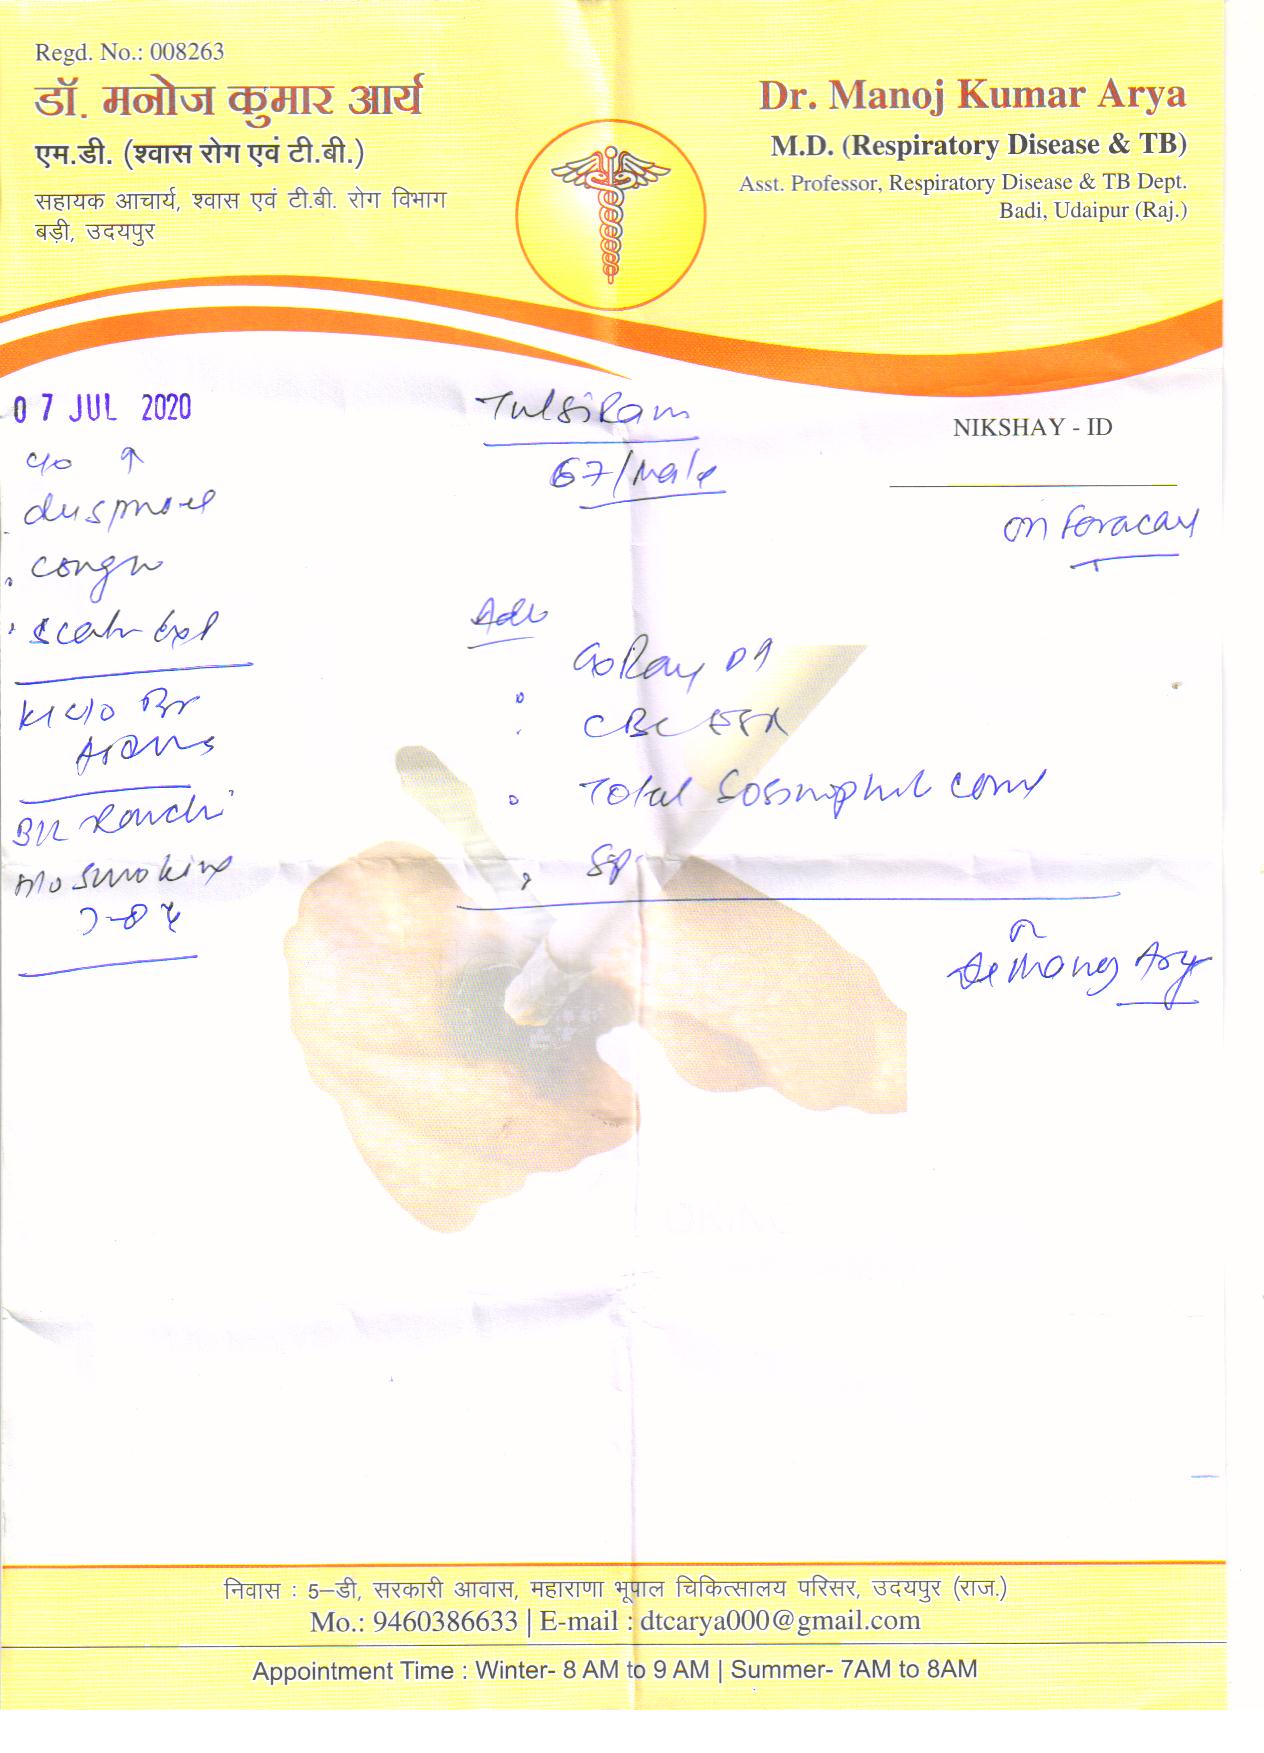 Regd. No.: 008263
डॉ. मनोज कुमार आर्य
एम.डी. (श्वास रोग एवं टी.बी.)
सहायक आचार्य, श्वास एवं टी.बी. रोग विभाग
बड़ी, उदयपुर
Dr. Manoj Kumar Arya
M.D. (Respiratory Disease & TB)
Asst. Professor, Respiratory Disease & TB Dept.
Badi, Udaipur (Raj.)
07 JUL 2020
TulsiRam
67/Male
NIKSHAY - ID
on Foracay
c/o ↑
dyspnoea
cough
K/c/o Br
Adv
CBC ESR
Total Eosinophil count
no smoking
निवास : 5–डी, सरकारी आवास, महाराणा भूपाल चिकित्सालय परिसर, उदयपुर (राज.)
Mo.: 9460386633 | E-mail : dtcarya000@gmail.com
Appointment Time : Winter- 8 AM to 9 AM | Summer- 7AM to 8AM